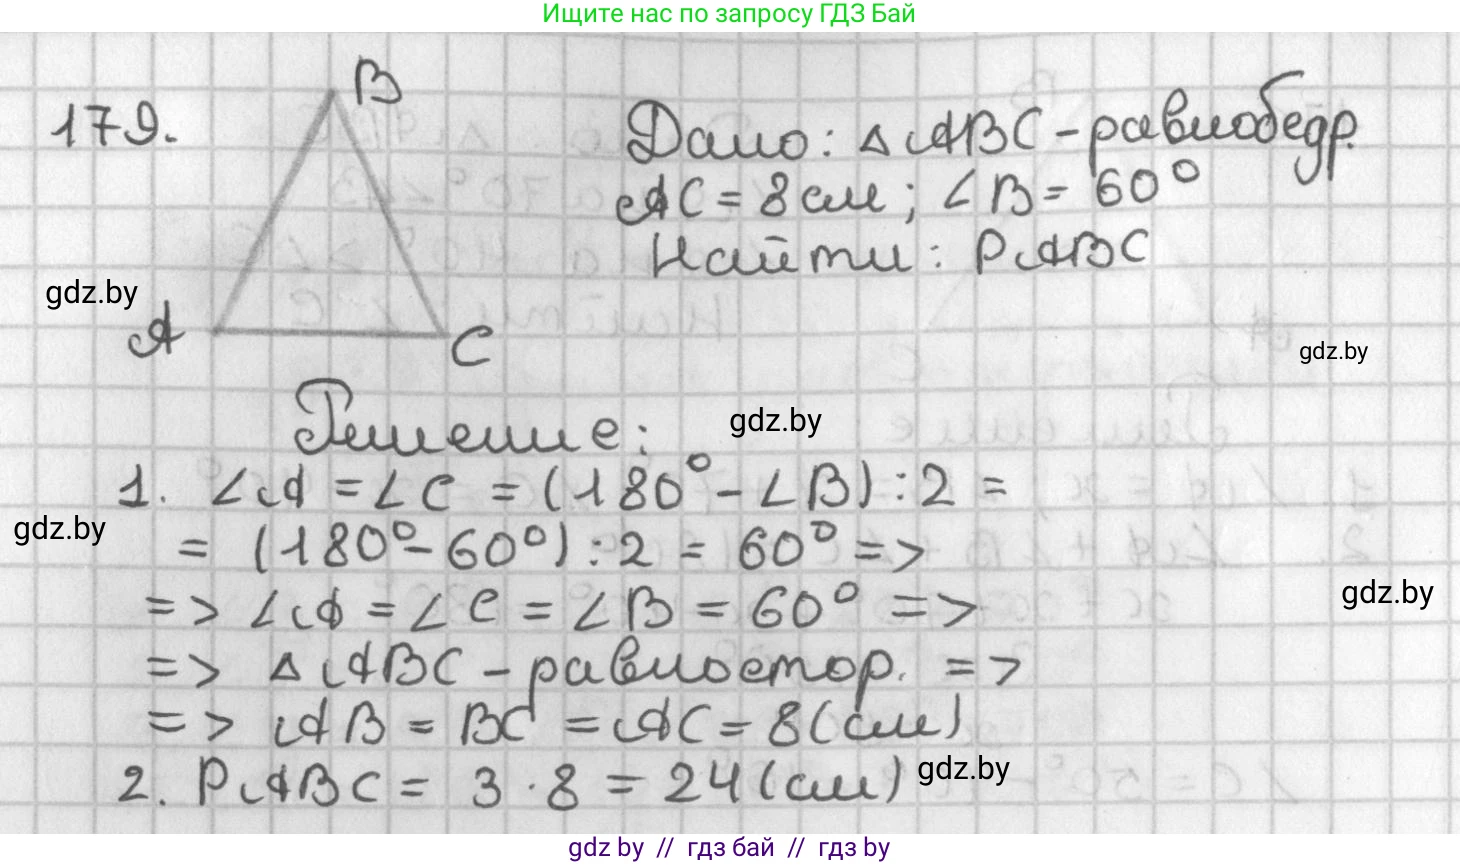 Ищите нас по запросу ГДЗ Бай
179.
B
A
C
Дано: ΔABC - равнобедр.
AC = 8 см; ∠B = 60°
Найти: PABC
gdz.by
gdz.by
Решение:
gdz.by
1. ∠A = ∠C = (180° - ∠B) : 2 =
gdz.by
= (180° - 60°) : 2 = 60° =>
gdz.by
=> ∠A = ∠C = ∠B = 60° =>
=> ΔABC - равностор. =>
=> AB = BC = AC = 8 (см)
2. PABC = 3 · 8 = 24 (см)
gdz.by
gdz.by // гдз бай // гдз by